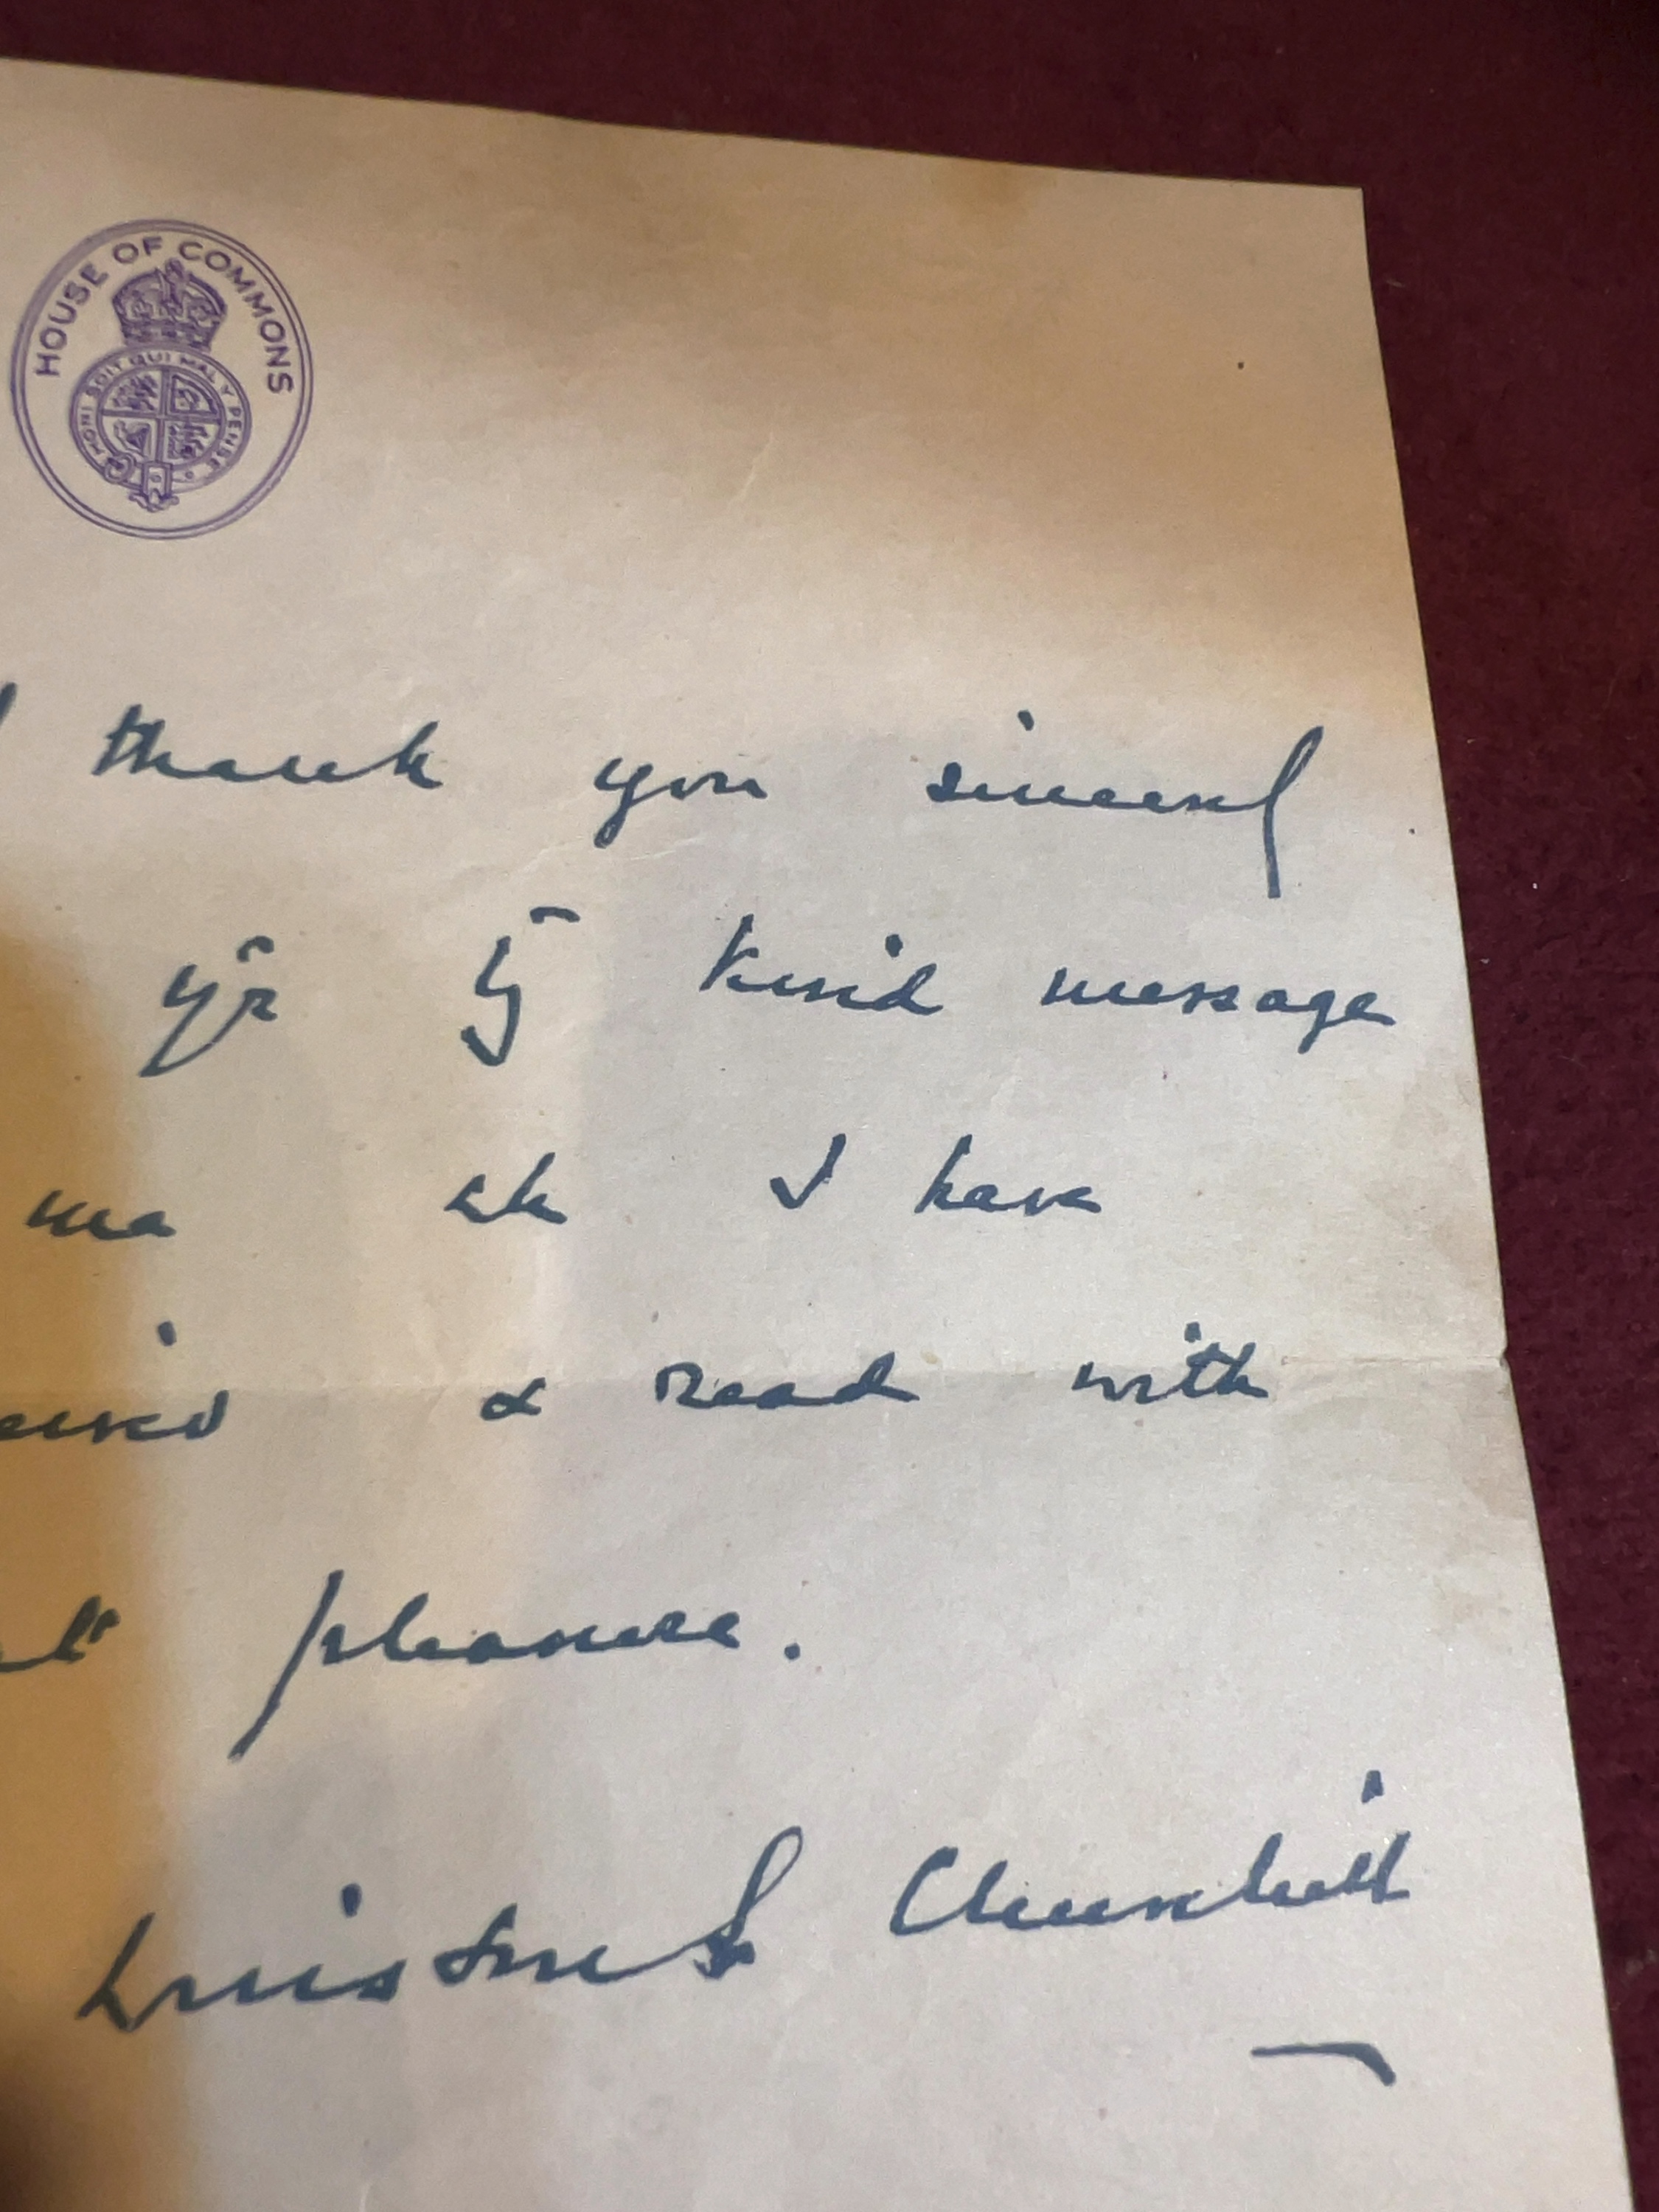 HOUSE OF COMMONS
HONI SOIT QUI MAL Y PENSE
thank you sincerely
yr kind message
me wh I have
& read with
pleasure.
Winston S Churchill